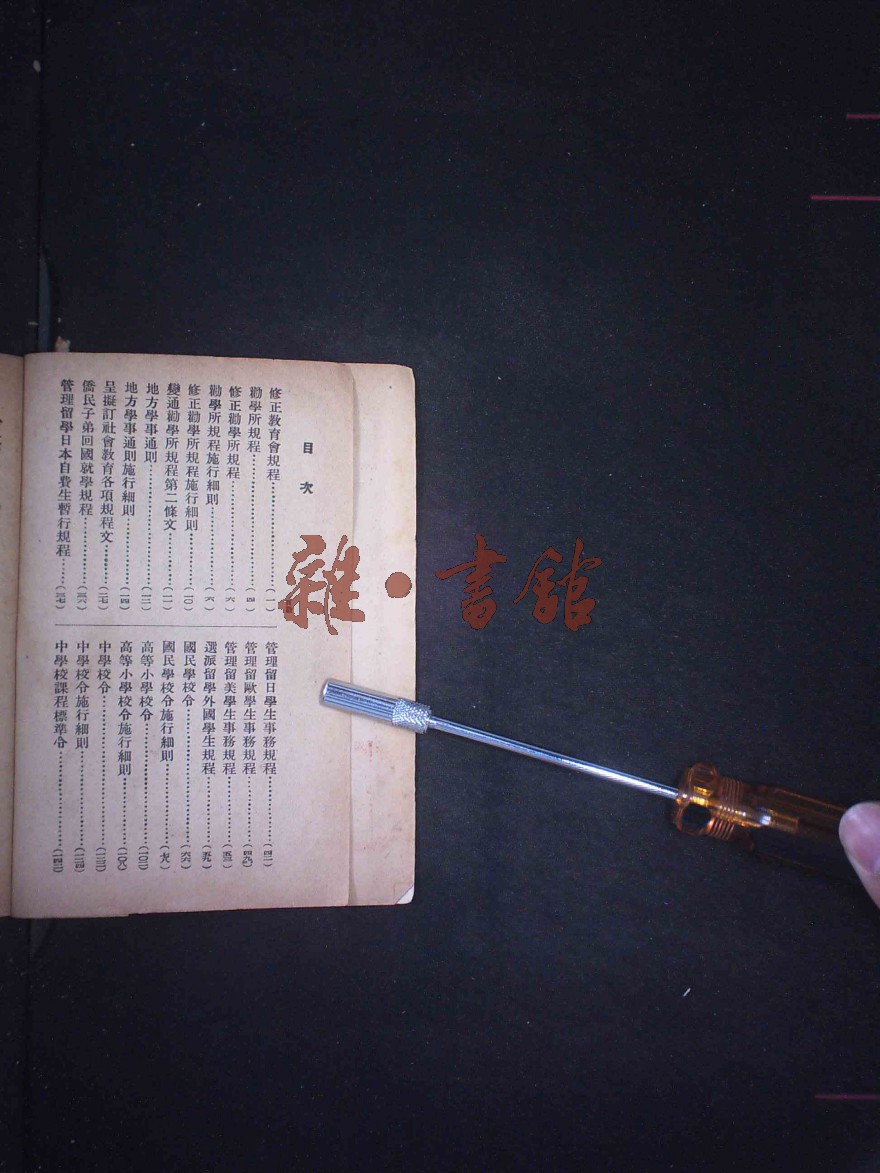 目次
修正教育會規程⋯⋯(一)
勸學所規程⋯⋯(四)
修正勸學所規程⋯⋯(六)
勸學所規程施行細則⋯⋯(六)
修正勸學所規程施行細則⋯⋯(一〇)
變通勸學所規程第二條文⋯⋯(一一)
地方學事通則⋯⋯(一二)
地方學事通則施行細則⋯⋯(一四)
呈擬訂社會教育各項規程文⋯⋯(二七)
僑民子弟回國就學規程⋯⋯(三六)
管理留學日本自費生暫行規程⋯⋯(三七)
管理留日學生事務規程⋯⋯(四二)
管理留歐學生事務規程⋯⋯(四九)
管理留美學生事務規程⋯⋯(五三)
選派留學外國學生規程⋯⋯(五九)
國民學校令⋯⋯(六六)
國民學校令施行細則⋯⋯(七八)
高等小學校令⋯⋯(一〇二)
高等小學校令施行細則⋯⋯(一〇八)
中學校令⋯⋯(一二二)
中學校令施行細則⋯⋯(一二四)
中學校課程標準令⋯⋯(一四二)
雜·書館